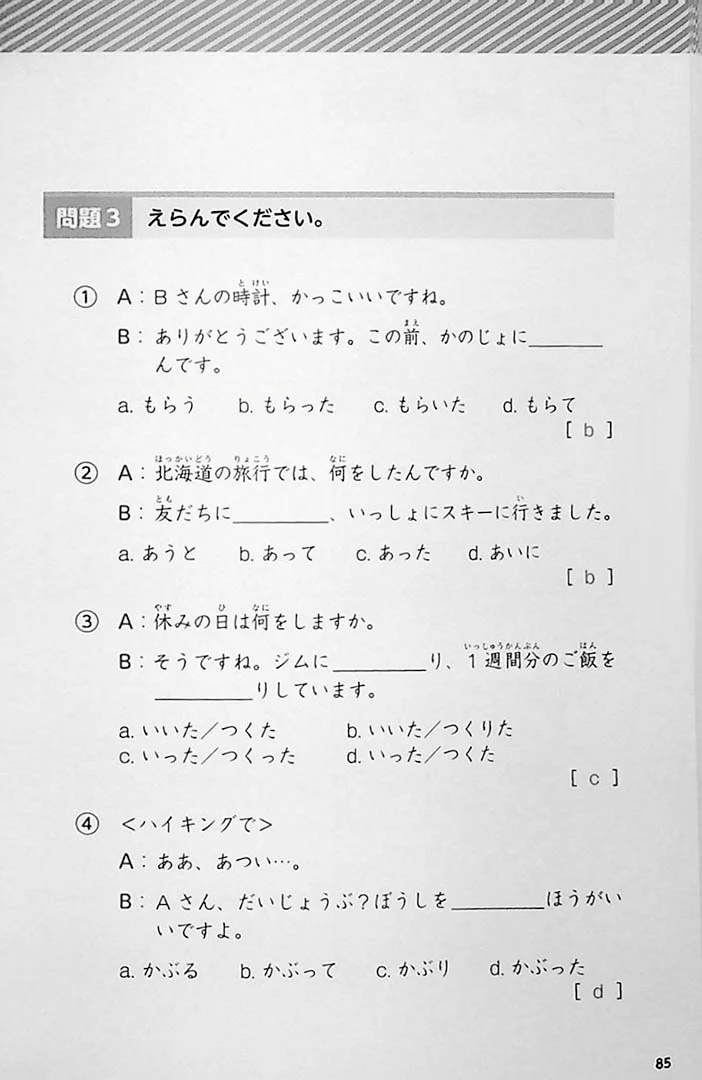 問題3 えらんでください。
① A：Bさんの時計、かっこいいですね。
とけい
B：ありがとうございます。この前、かのじょに________
まえ
んです。
a. もらう b. もらった c. もらいた d. もらて
[ b ]
② A：北海道の旅行では、何をしたんですか。
ほっかいどう りょこう なに
B：友だちに________、いっしょにスキーに行きました。
とも い
a. あうと b. あって c. あった d. あいに
[ b ]
③ A：休みの日は何をしますか。
やす ひ なに
B：そうですね。ジムに________り、1週間分のご飯を
いっしゅうかんぶん はん
________りしています。
a. いいた／つくた b. いいた／つくりた
c. いった／つくった d. いった／つくた
[ c ]
④ ＜ハイキングで＞
A：ああ、あつい…。
B：Aさん、だいじょうぶ？ぼうしを________ほうがい
いですよ。
a. かぶる b. かぶって c. かぶり d. かぶった
[ d ]
85